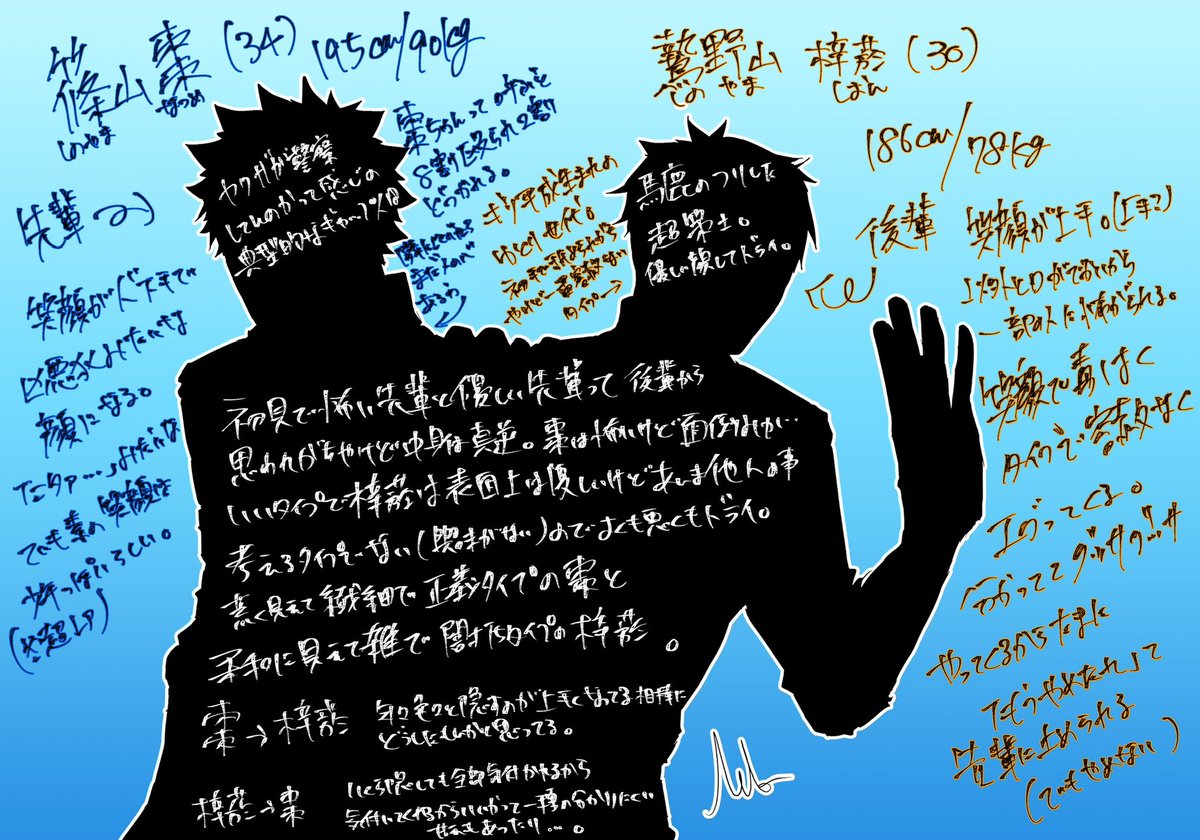 篠山 棗 (34) 195cm/90kg
しのやま なつめ
先輩
笑顔が下手で
凶悪犯みたいな
顔になる。
でも棗の笑顔は
少年っぽいらしい。
棗ちゃんって呼ぶと
8割殴られ2割
どつかれる。
ヤクザが警察
してんのかって感じの
典型的なギャップ人間
鷲野山 梓菸 (30)
186cm/78kg
後輩
ギリ平成生まれの
ゆとり世代。
タイプ→
馬鹿のフリした
超策士。
優しい顔してドライ。
笑顔が上手。(上手?)
一部の人に怖がられる。
笑顔で毒はく
タイプで容赦なく
エグってくる。
分かっててグッサグッサ
やってくるからたまに
「もうやめたれ」って
先輩に止められる
(でもやめない)
初見で怖い先輩と優しい先輩って後輩から
思われがちやけど中身は真逆。棗は怖いけど面倒見が…
いいタイプで梓菸は表面上は優しいけどあんま他人の事
考えるタイプじゃない(興味がない)ので良くも悪くもドライ。
荒く見えて繊細で正義タイプの棗と
柔和に見えて雑で闇オチタイプの梓菸。
棗→梓菸 色々と隠すのが上手くなってる相棒に
どうしたもんかと思ってる。
梓菸→棗 いくら隠しても全部気付かれるから
気付いてくれるからいいかって一種の分かりにくい
甘えもあったり…。